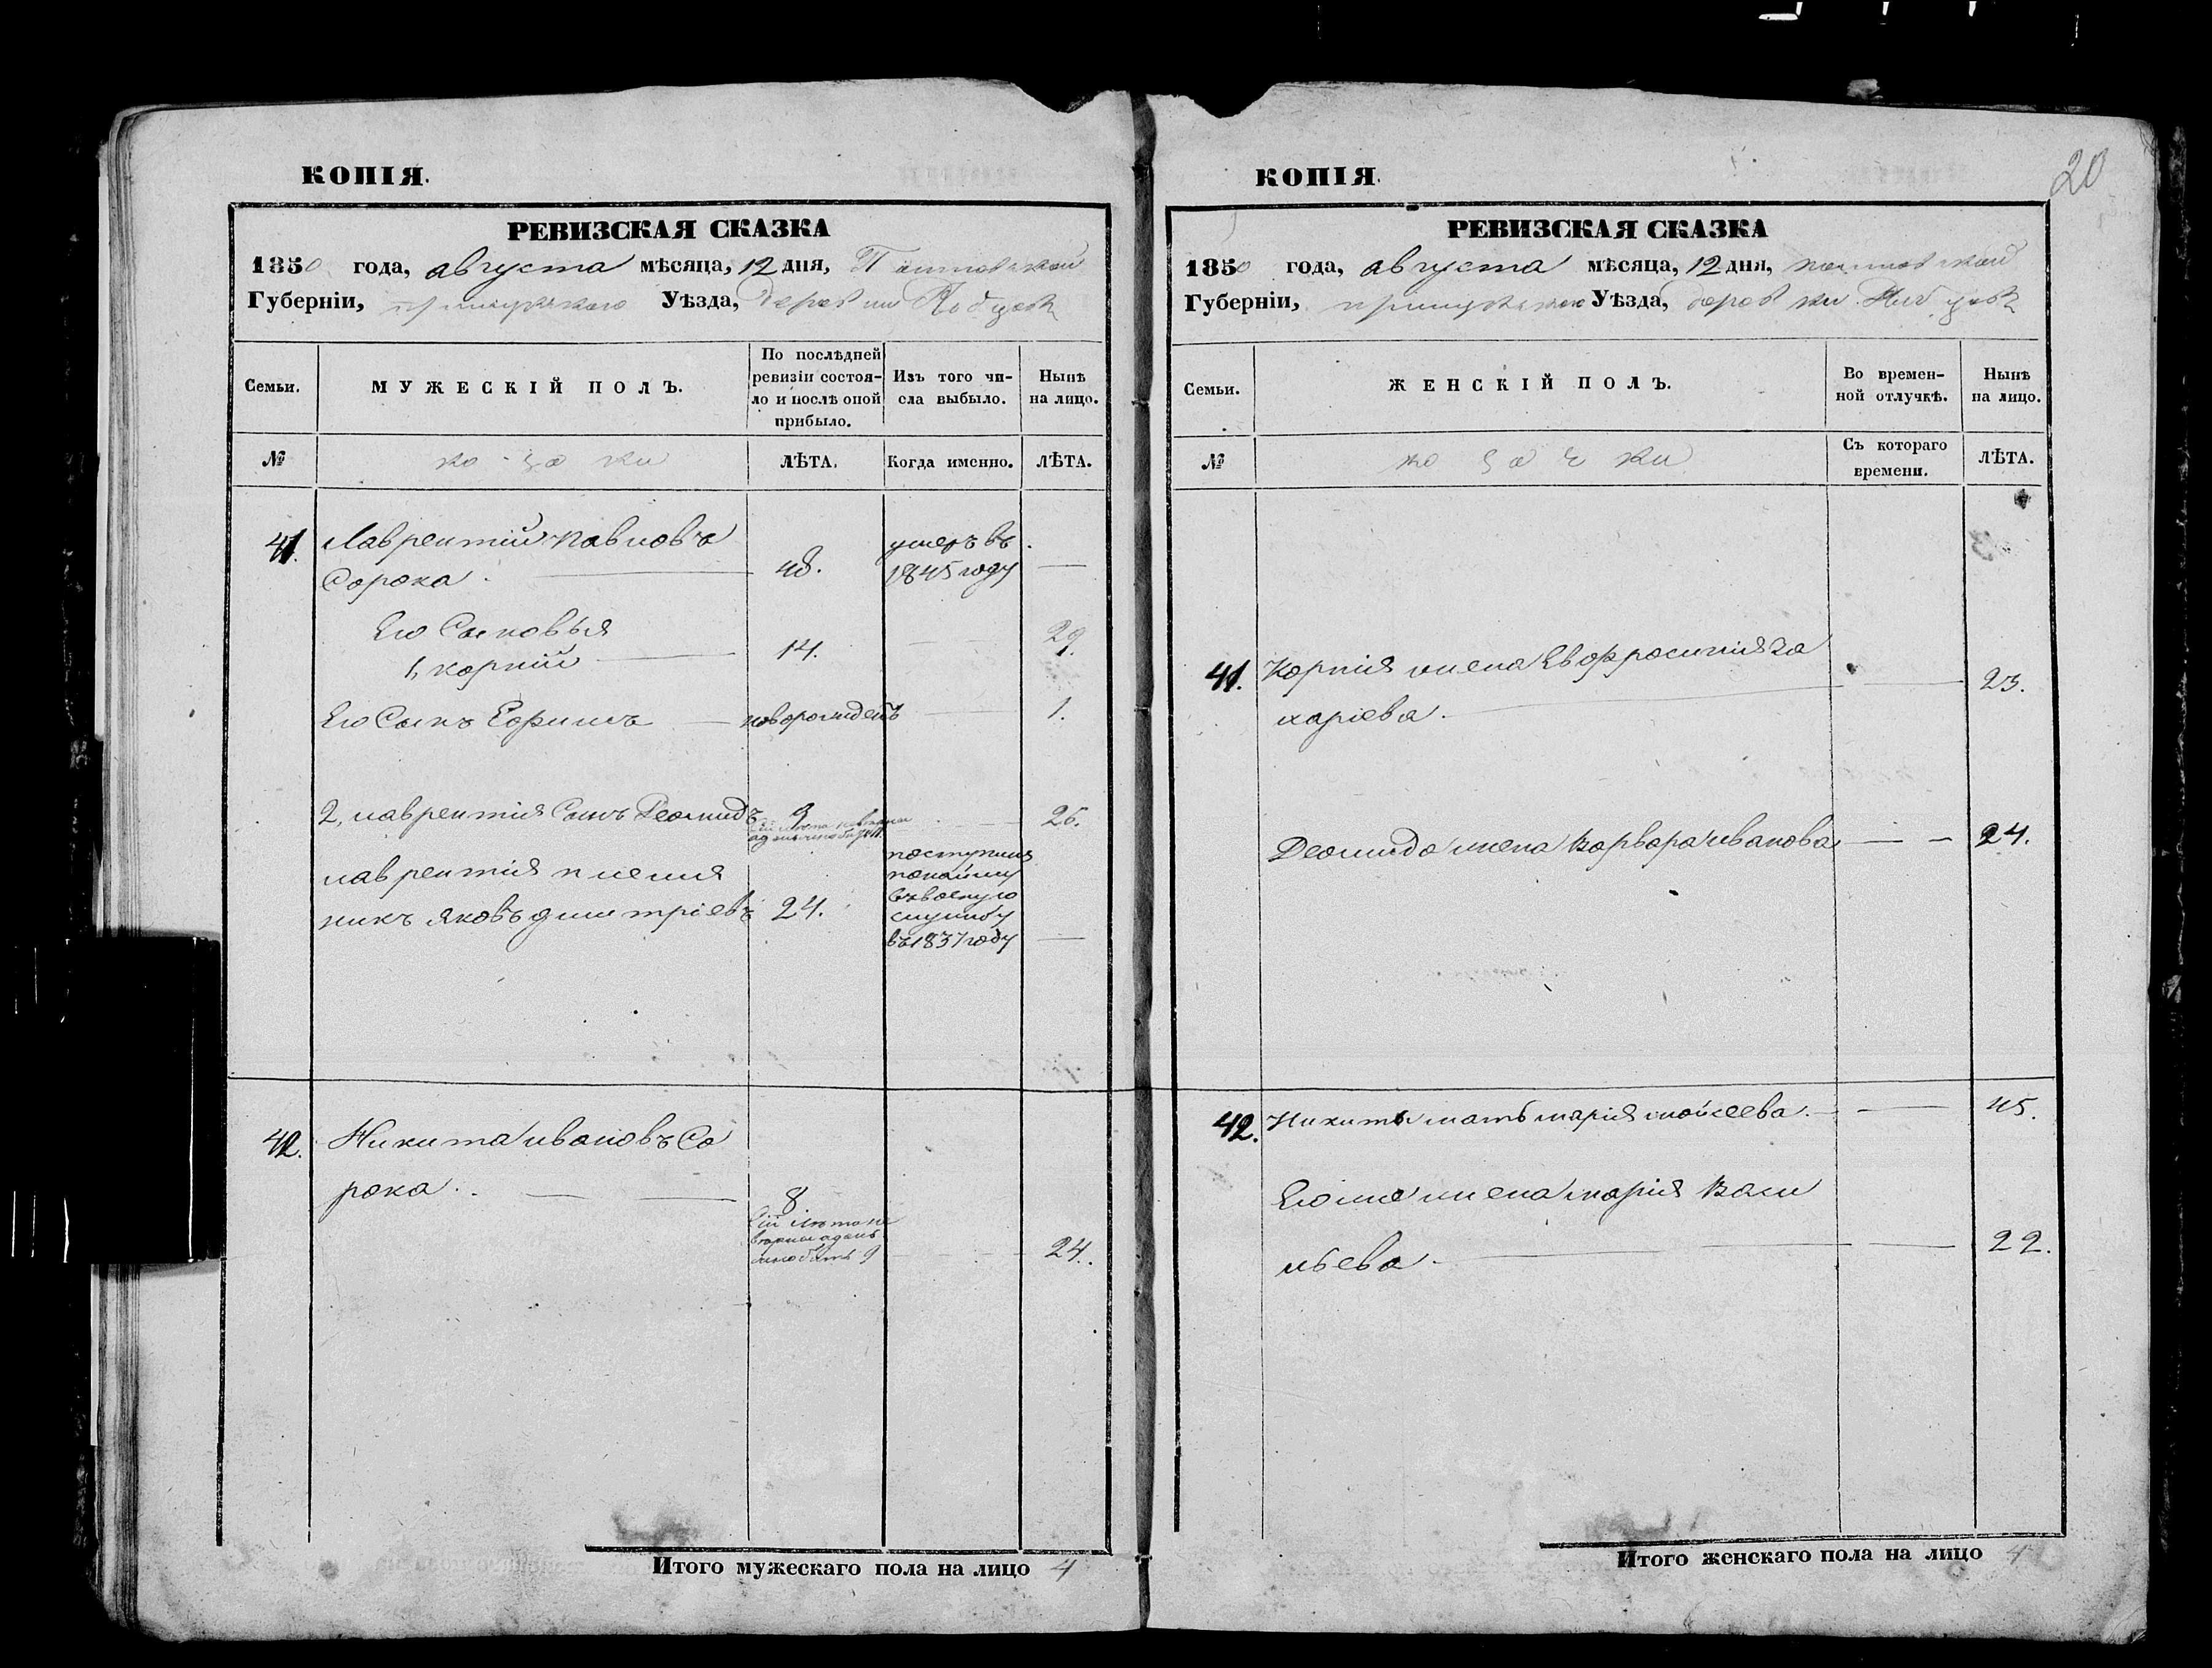 КОПІЯ.
РЕВИЗСКАЯ СКАЗКА
1850 года, августа мѣсяца, 12 дня, Полтавской
Губерніи, прилуцкаго Уѣзда, деревни
Семьи.
МУЖЕСКІЙ ПОЛЪ.
По послѣдней
ревизіи состоя-
ло и послѣ оной
прибыло.
Изъ того чи-
сла выбыло.
Нынѣ
на лицо.
№
козаки
ЛѢТА.
Когда именно.
ЛѢТА.
41. Лаврентий Павловъ
Сорока. 48. умеръ въ
1845 году
Его Сыновья
1, корній 14. 29.
Его Сынъ Ефимъ новорожденъ 1.
2, лаврентія Сынъ Деомидъ 9 26.
лаврентія племя
никъ яковъ дмитріевъ 24.
поступилъ
по найму
въ военную
службу
въ 1837 году
42. Никита ивановъ Со
рока. 8
сіи лѣта не
24.
Итого мужескаго пола на лицо 4
КОПІЯ.
20
РЕВИЗСКАЯ СКАЗКА
1850 года, августа мѣсяца, 12 дня, полтавской
Губерніи, прилуцкаго Уѣзда, деревни
Семьи.
ЖЕНСКІЙ ПОЛЪ.
Во времен-
ной отлучкѣ.
Нынѣ
на лицо.
№
козачки
Съ котораго
времени.
ЛѢТА.
41. Корнія жена Евфросинія За
харіева. 23.
Деомида жена Варвара иванова 24.
42. Никиты мать марія мойсеева. 45.
Его же жена марія Васи
льева. 22.
Итого женскаго пола на лицо 4